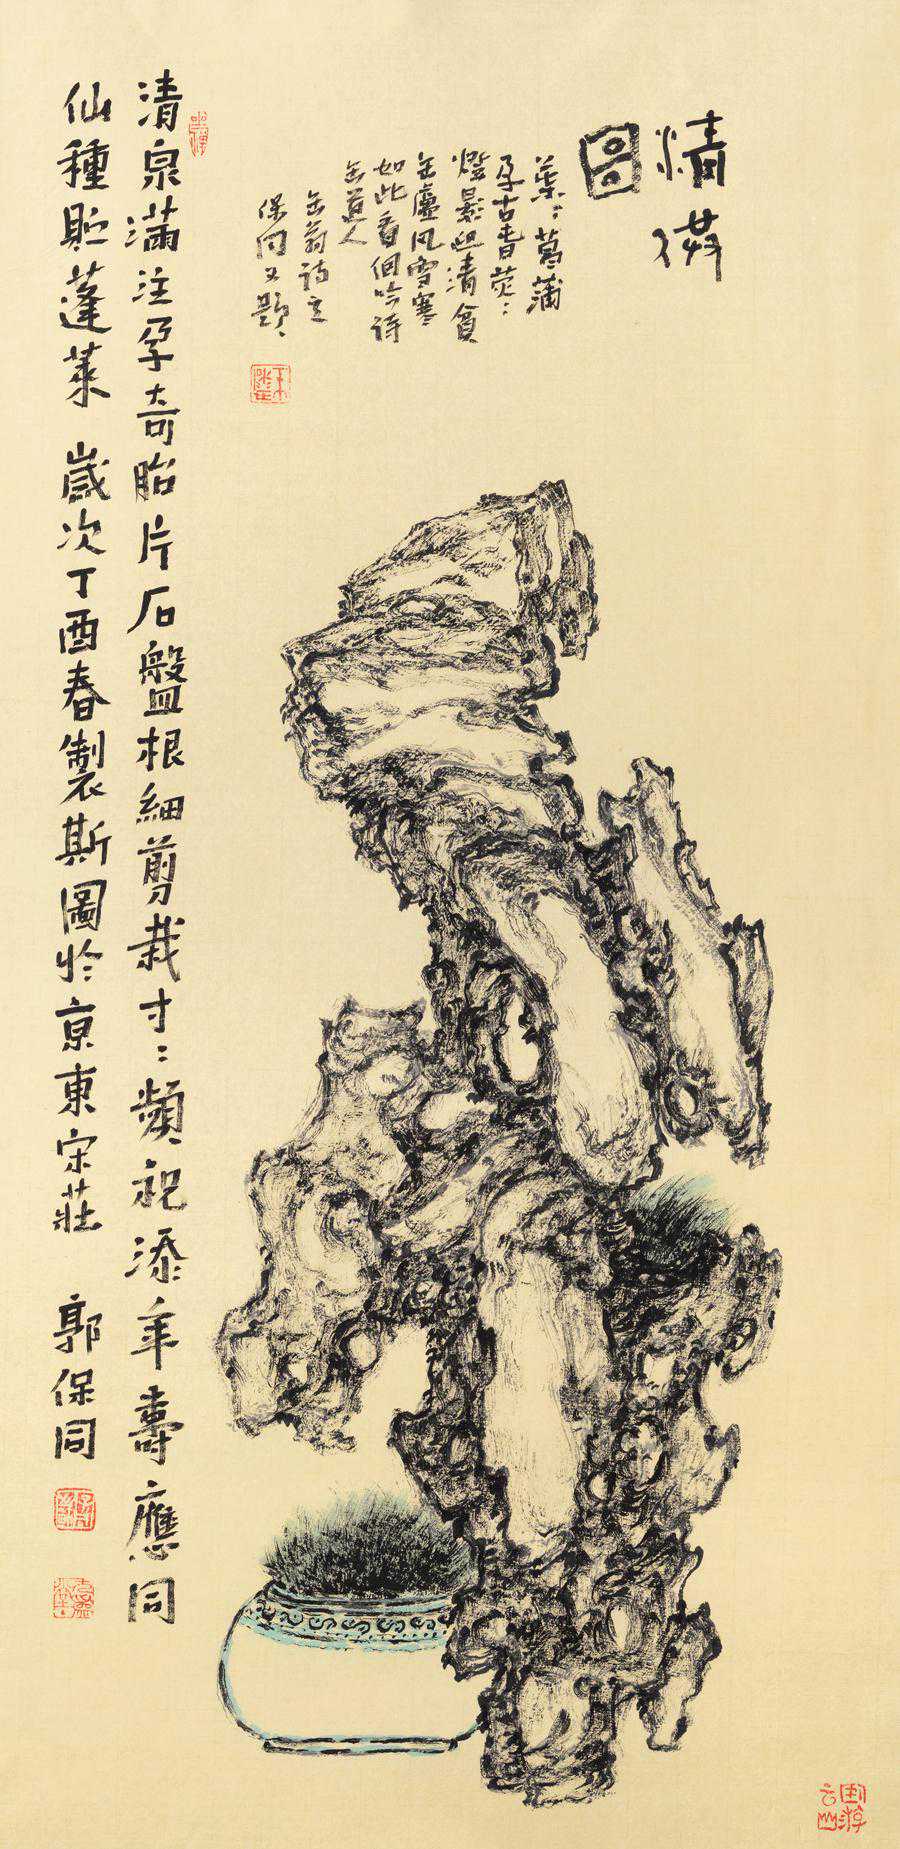 清供
圖
葉〻菖蒲
孕古春熒〻
燈影照清貧
缶廬風雪寒
如此看個吟詩
缶道人
缶翁詩
保同又題
清泉滿注孕奇胎片石盤根細剪栽寸〻頻祝添年壽應同
仙種貯蓬萊 歲次丁酉春製斯圖於京東宋莊 郭保同